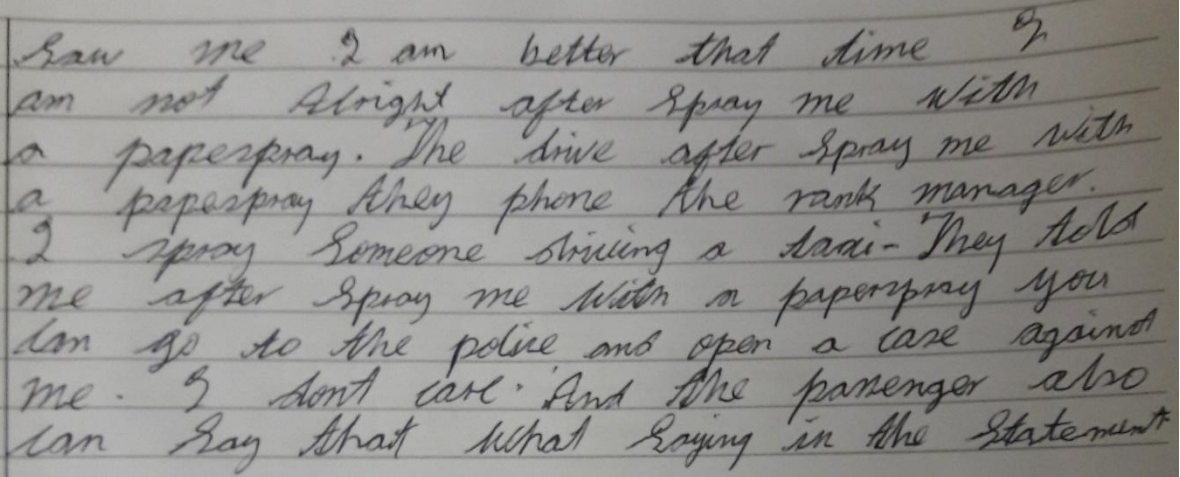 Saw me I am better that time I
am not Alright after spray me with
a paperspray. The drive after spray me with
a paperspray they phone the rank manager.
I spray someone driving a taxi- They told
me after spray me with a paperspray you
can go to the police and open a case against
me. I dont care. And the passenger also
can say that what saying in the statement